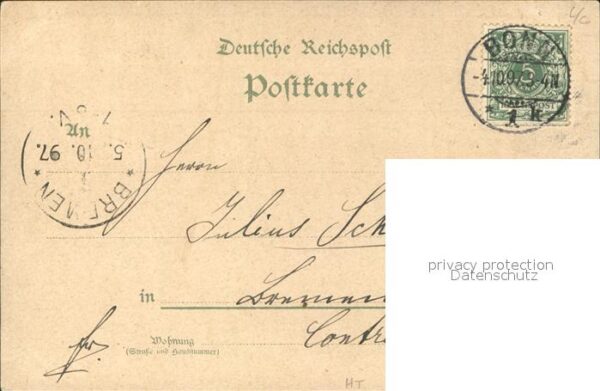 Deutsche Reichspost
Postkarte
BONN
5
* 1 k
An
BREMEN
5. 10. 97.
Herrn
Julius Sch
in Bremen
Contr
Wohnung
(Straße und Hausnummer)
fr.
privacy protection
Datenschutz
HT